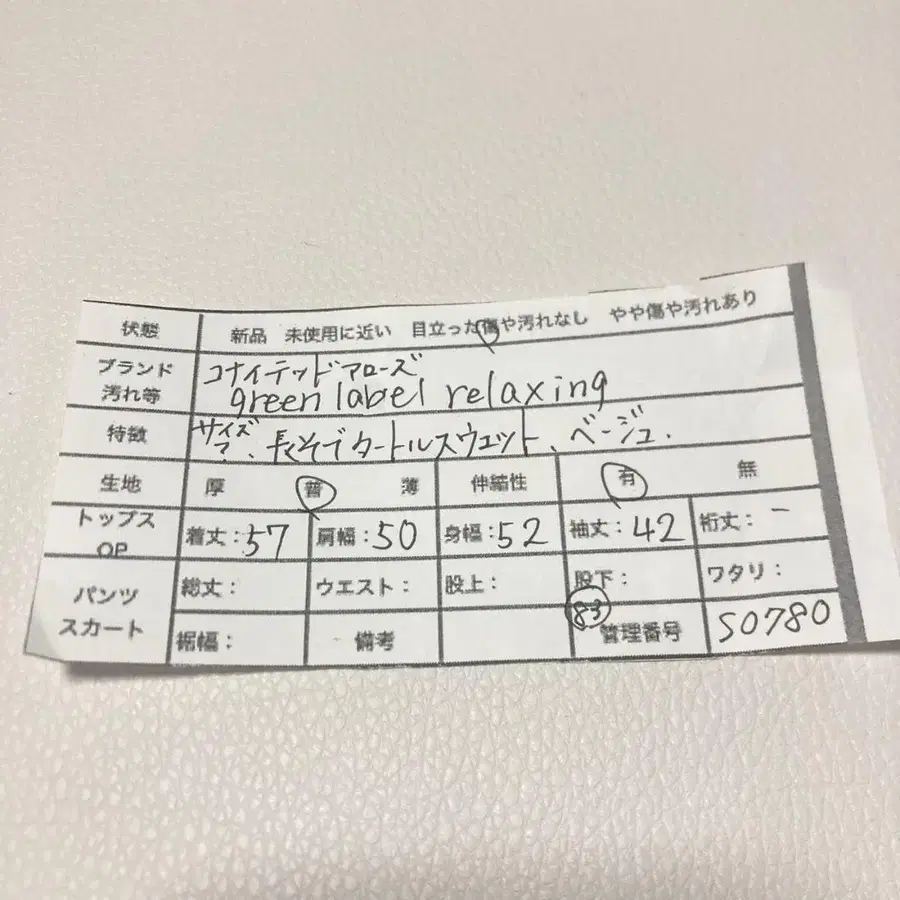 状態 新品 未使用に近い 目立った傷や汚れなし やや傷や汚れあり
ブランド 汚れ等 ユナイテッドアローズ
green label relaxing
特徴 サイズ?、長そでタートルスウェット、ベージュ.
生地 厚 普 薄 伸縮性 有 無
トップス OP 着丈:57 肩幅:50 身幅:52 袖丈:42 裄丈:-
パンツ スカート 総丈: ウエスト: 股上: 股下: ワタリ:
裾幅: 備考 83 管理番号 S0780